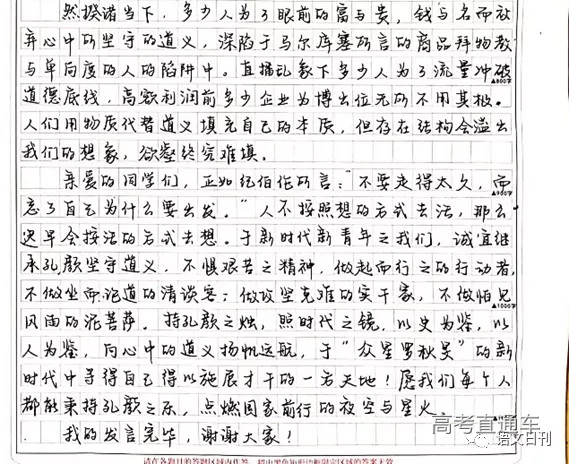 然揆诸当下，多少人为了眼前的富与贵，钱与名而放
弃心中所坚守的道义，深陷于马尔库塞所言的商品拜物教
与单向度的人的陷阱中。直播乱象下多少人为了流量冲破
道德底线，高额利润前多少企业为博出位无所不用其极。
▲800字
人们用物质代替道义填充自己的本质，但存在结构会溢出
我们的想象，欲壑终究难填。
亲爱的同学们，正如纪伯伦所言："不要走得太久，而
▲900字
忘了自己为什么要出发。"人不按照想的方式去活，那么
迟早会按活的方式去想。于新时代新青年之我们，诚宜继
承孔颜坚守道义，不惧艰苦之精神，做起而行之的行动者，
不做坐而论道的清谈客；做攻坚克难的实干家，不做怕见
▲1000字
风雨的泥菩萨。持孔颜之烛，照时代之镜，以史为鉴，以
人为鉴，向心中的道义扬帆远航，于"众星罗秋旻"的新
时代中寻得自己得以施展才干的一方天地！愿我们每个人
都能秉持孔颜之乐，点燃国家前行的夜空与星火。
我的发言完毕，谢谢大家！
高考直通车
语文日刊
请在各题目的答题区域内作答，超出黑色矩形边框限定区域的答案无效